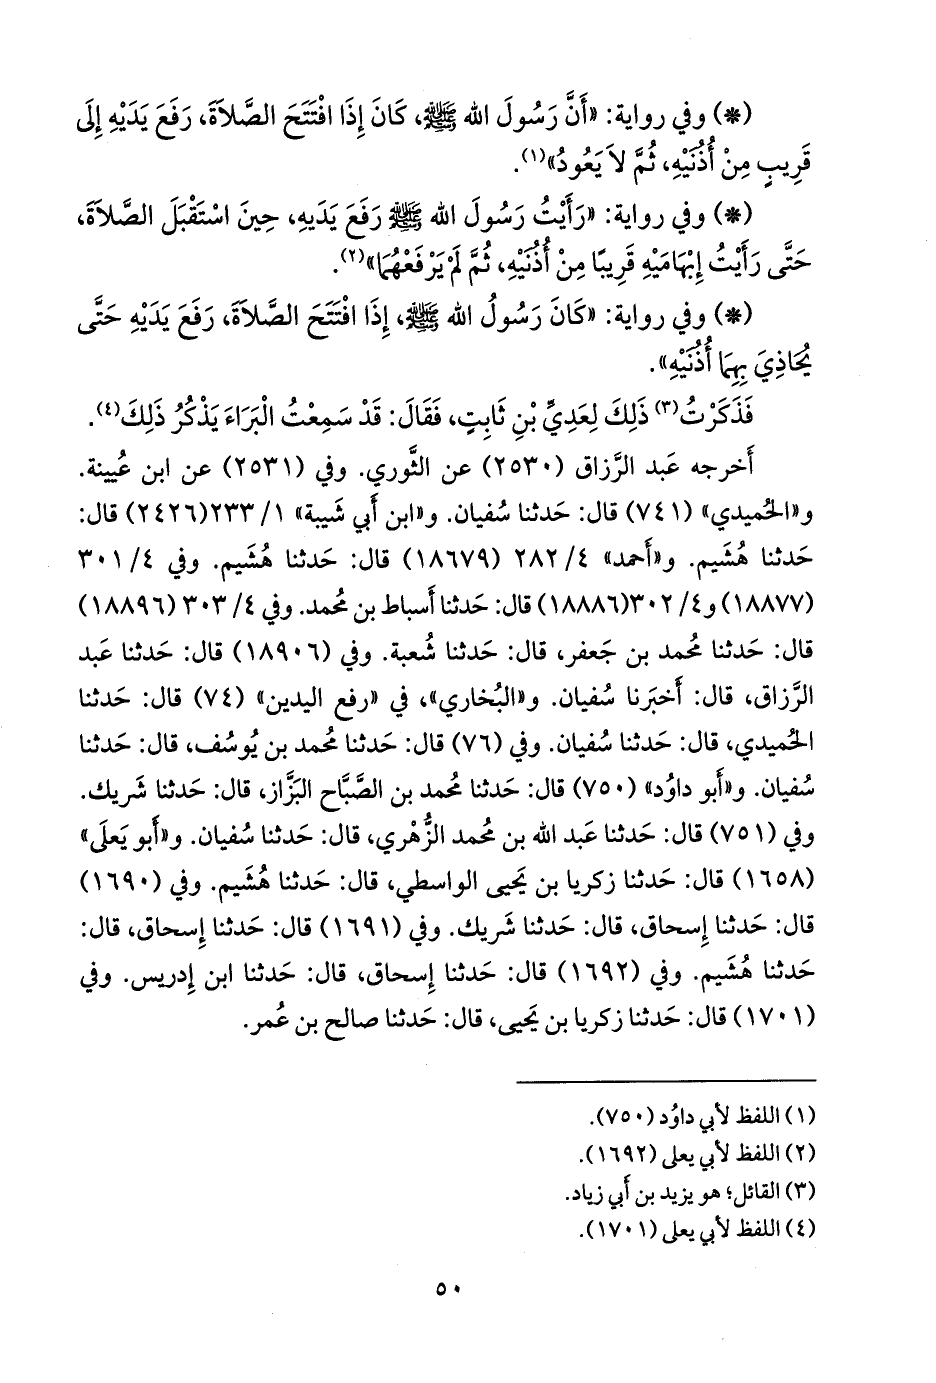 (*) وفي رواية: «أَنَّ رَسُولَ الله ﷺ، كَانَ إِذَا افْتَتَحَ الصَّلاَةَ، رَفَعَ يَدَيْهِ إِلَى
قَرِيبٍ مِنْ أُذُنَيْهِ، ثُمَّ لاَ يَعُودُ»(١).
(*) وفي رواية: «رَأَيْتُ رَسُولَ الله ﷺ رَفَعَ يَدَيهِ، حِينَ اسْتَقْبَلَ الصَّلاَةَ،
حَتَّى رَأَيْتُ إِبْهَامَيْهِ قَرِيبًا مِنْ أُذُنَيْهِ، ثُمَّ لَمْ يَرْفَعْهُمَا»(٢).
(*) وفي رواية: «كَانَ رَسُولُ الله ﷺ، إِذَا افْتَتَحَ الصَّلاَةَ، رَفَعَ يَدَيْهِ حَتَّى
يُحَاذِيَ بِهِمَا أُذُنَيْهِ».
فَذَكَرْتُ(٣) ذَلِكَ لِعَدِيِّ بْنِ ثَابِتٍ، فَقَالَ: قَدْ سَمِعْتُ الْبَرَاءَ يَذْكُرُ ذَلِكَ(٤).
أَخرجه عَبد الرَّزاق (٢٥٣٠) عن الثَّوري. وفي (٢٥٣١) عن ابن عُيينة.
و«الحُميدي» (٧٤١) قال: حَدثنا سُفيان. و«ابن أَبي شَيبة» ١/ ٢٣٣(٢٤٢٦) قال:
حَدثنا هُشَيم. و«أَحمد» ٤/ ٢٨٢ (١٨٦٧٩) قال: حَدثنا هُشَيم. وفي ٤/ ٣٠١
(١٨٨٧٧) و٤/ ٣٠٢(١٨٨٨٦) قال: حَدثنا أَسباط بن مُحمد. وفي ٤/ ٣٠٣ (١٨٨٩٦)
قال: حَدثنا مُحمد بن جَعفر، قال: حَدثنا شُعبة. وفي (١٨٩٠٦) قال: حَدثنا عَبد
الرَّزاق، قال: أَخبَرنا سُفيان. و«البُخاري»، في «رفع اليدين» (٧٤) قال: حَدثنا
الحُميدي، قال: حَدثنا سُفيان. وفي (٧٦) قال: حَدثنا مُحمد بن يُوسُف، قال: حَدثنا
سُفيان. و«أَبو داوُد» (٧٥٠) قال: حَدثنا مُحمد بن الصَّبَّاح البَزَّاز، قال: حَدثنا شَريك.
وفي (٧٥١) قال: حَدثنا عَبد الله بن مُحمد الزُّهْري، قال: حَدثنا سُفيان. و«أَبو يَعلى»
(١٦٥٨) قال: حَدثنا زكريا بن يَحيى الواسطي، قال: حَدثنا هُشَيم. وفي (١٦٩٠)
قال: حَدثنا إِسحاق، قال: حَدثنا شَريك. وفي (١٦٩١) قال: حَدثنا إِسحاق، قال:
حَدثنا هُشَيم. وفي (١٦٩٢) قال: حَدثنا إِسحاق، قال: حَدثنا ابن إِدريس. وفي
(١٧٠١) قال: حَدثنا زكريا بن يَحيى، قال: حَدثنا صالح بن عُمر.
(١) اللفظ لأَبي داوُد (٧٥٠).
(٢) اللفظ لأَبي يعلى (١٦٩٢).
(٣) القائل؛ هو يزيد بن أَبي زياد.
(٤) اللفظ لأَبي يعلى (١٧٠١).
٥٠